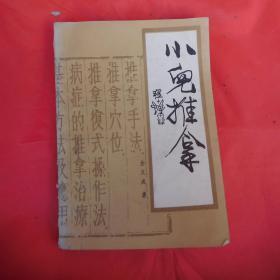 小兒推拿
推拿手法
推拿穴位
推拿復式操作法
病症的推拿治療
基本方法及應用